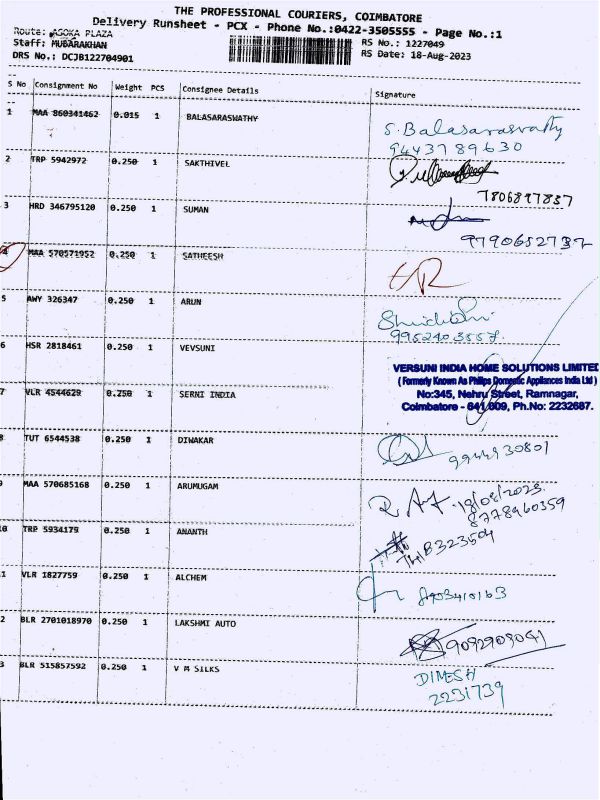 THE PROFESSIONAL COURIERS, COIMBATORE
Delivery Runsheet - PCX - Phone No.:0422-3505555 - Page No.:1
Route: ASOKA PLAZA
Staff: MUBARAKHAN
RS No.: 1227049
DRS No.: DCJB122704901
RS Date: 18-Aug-2023
S No Consignment No Weight PCS Consignee Details Signature
1 MAA 860341462 0.015 1 BALASARASWATHY S. Balasaraswathy
9443789630
2 TRP 5942972 0.250 1 SAKTHIVEL
7806897837
3 HRD 346795120 0.250 1 SUMAN
9790652737
4 MAA 570571952 0.250 1 SATHEESH
5 AWY 326347 0.250 1 ARUN
9952403557
6 HSR 2818461 0.250 1 VEVSUNI
VERSUNI INDIA HOME SOLUTIONS LIMITED
( Formerly Known As Philips Domestic Appliances India Ltd )
7 VLR 4544629 0.250 1 SERNI INDIA No:345, Nehru Street, Ramnagar,
Coimbatore - 641 009, Ph.No: 2232687.
8 TUT 6544538 0.250 1 DIWAKAR
9944930801
9 MAA 570685168 0.250 1 ARUMUGAM 18/08/2023
8778960359
10 TRP 5934179 0.250 1 ANANTH
11 VLR 1827759 0.250 1 ALCHEM
8903410163
2 BLR 2701018970 0.250 1 LAKSHMI AUTO
9092909041
3 BLR 515857592 0.250 1 V M SILKS DIMESH
2231739